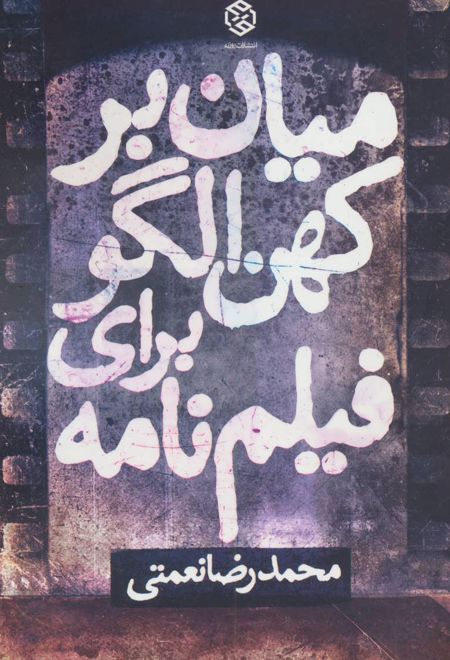 میان بر
کهن الگو
برای
فیلم نامه
محمدرضا نعمتی